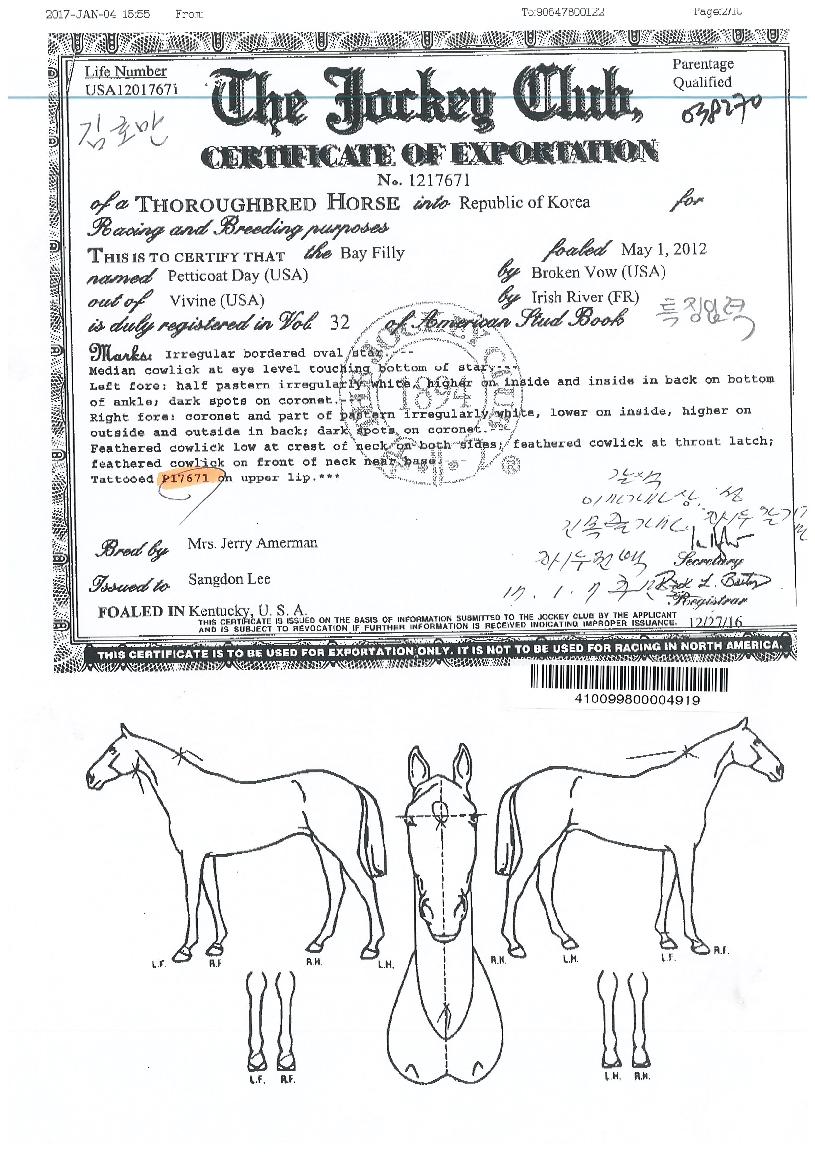 2017-JAN-04 15:55 From: To:90647800122 Page:2/10
Life Number
USA12017671
Parentage
Qualified
038270
The Jockey Club,
김효만
CERTIFICATE OF EXPORTATION
No. 1217671
of a THOROUGHBRED HORSE into Republic of Korea for
Racing and Breeding purposes
THIS IS TO CERTIFY THAT the Bay Filly foaled May 1, 2012
named Petticoat Day (USA) by Broken Vow (USA)
out of Vivine (USA) by Irish River (FR)
is duly registered in Vol. 32 of American Stud Book
특징입력
Marks: Irregular bordered oval star.---
Median cowlick at eye level touching bottom of star.---
Left fore: half pastern irregularly white, higher on inside and inside in back on bottom
of ankle; dark spots on coronet.---
Right fore: coronet and part of pastern irregularly white, lower on inside, higher on
outside and outside in back; dark spots on coronet.---
Feathered cowlick low at crest of neck on both sides; feathered cowlick at throat latch;
feathered cowlick on front of neck near base.
Tattooed P17671 on upper lip.***
THE JOCKEY CLUB
1894
®
Bred by Mrs. Jerry Amerman
Secretary
Issued to Sangdon Lee
17. 1. 7
Registrar
FOALED IN Kentucky, U. S. A.
THIS CERTIFICATE IS ISSUED ON THE BASIS OF INFORMATION SUBMITTED TO THE JOCKEY CLUB BY THE APPLICANT
AND IS SUBJECT TO REVOCATION IF FURTHER INFORMATION IS RECEIVED INDICATING IMPROPER ISSUANCE. 12/27/16
THIS CERTIFICATE IS TO BE USED FOR EXPORTATION ONLY. IT IS NOT TO BE USED FOR RACING IN NORTH AMERICA.
410099800004919
L.F. R.F. R.H. L.H. R.H. L.H. L.F. R.F.
L.F. R.F. L.H. R.H.